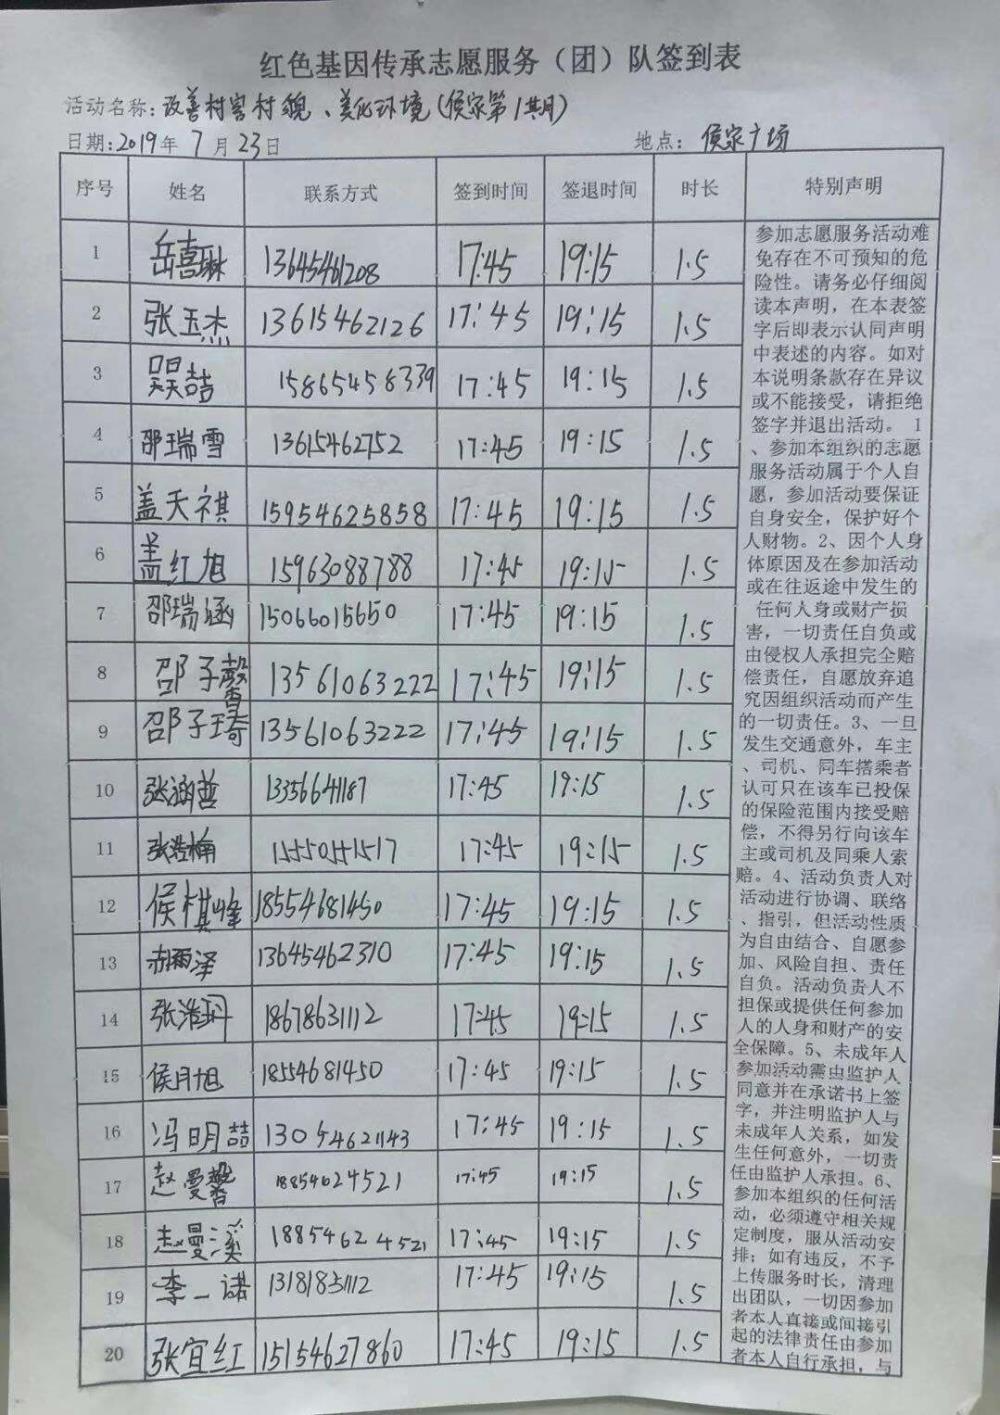 红色基因传承志愿服务（团）队签到表
活动名称：改善村容村貌、美化环境(侯家第1期)
日期:2019年7月23日 地点：侯家广场
序号 姓名 联系方式 签到时间 签退时间 时长 特别声明
1 岳喜琳 13645461208 17:45 19:15 1.5
2 张玉杰 13615462126 17:45 19:15 1.5
3 吴喆 15865458339 17:45 19:15 1.5
4 邵瑞雪 13615462752 17:45 19:15 1.5
5 盖天祺 15954625858 17:45 19:15 1.5
6 盖红旭 15963088788 17:45 19:15 1.5
7 邵瑞涵 15066015650 17:45 19:15 1.5
8 邵子馨 13561063222 17:45 19:15 1.5
9 邵子琦 13561063222 17:45 19:15 1.5
10 张涵 13356641187 17:45 19:15 1.5
11 张浩楠 15550551517 17:45 19:15 1.5
12 侯棋峰 18554681450 17:45 19:15 1.5
13 郝雨泽 13645462310 17:45 19:15 1.5
14 张浩 18678631112 17:45 19:15 1.5
15 侯月旭 18554681450 17:45 19:15 1.5
16 冯明喆 13054621143 17:45 19:15 1.5
17 赵曼馨 18854624521 17:45 19:15 1.5
18 赵曼溪 18854624521 17:45 19:15 1.5
19 李一诺 13181831112 17:45 19:15 1.5
20 张宜红 15154627860 17:45 19:15 1.5
参加志愿服务活动难
免存在不可预知的危
险性。请务必仔细阅
读本声明，在本表签
字后即表示认同声明
中表述的内容。如对
本说明条款存在异议
或不能接受，请拒绝
签字并退出活动。 1
、参加本组织的志愿
服务活动属于个人自
愿，参加活动要保证
自身安全，保护好个
人财物。2、因个人身
体原因及在参加活动
或在往返途中发生的
任何人身或财产损
害，一切责任自负或
由侵权人承担完全赔
偿责任，自愿放弃追
究因组织活动而产生
的一切责任。3、一旦
发生交通意外，车主
、司机、同车搭乘者
认可只在该车已投保
的保险范围内接受赔
偿，不得另行向该车
主或司机及同乘人索
赔。4、活动负责人对
活动进行协调、联络
、指引，但活动性质
为自由结合、自愿参
加、风险自担、责任
自负。活动负责人不
担保或提供任何参加
人的人身和财产的安
全保障。5、未成年人
参加活动需由监护人
同意并在承诺书上签
字，并注明监护人与
未成年人关系，如发
生任何意外，一切责
任由监护人承担。6、
参加本组织的任何活
动，必须遵守相关规
定制度，服从活动安
排；如有违反，不予
上传服务时长，清理
出团队，一切因参加
者本人直接或间接引
起的法律责任由参加
者本人自行承担，与